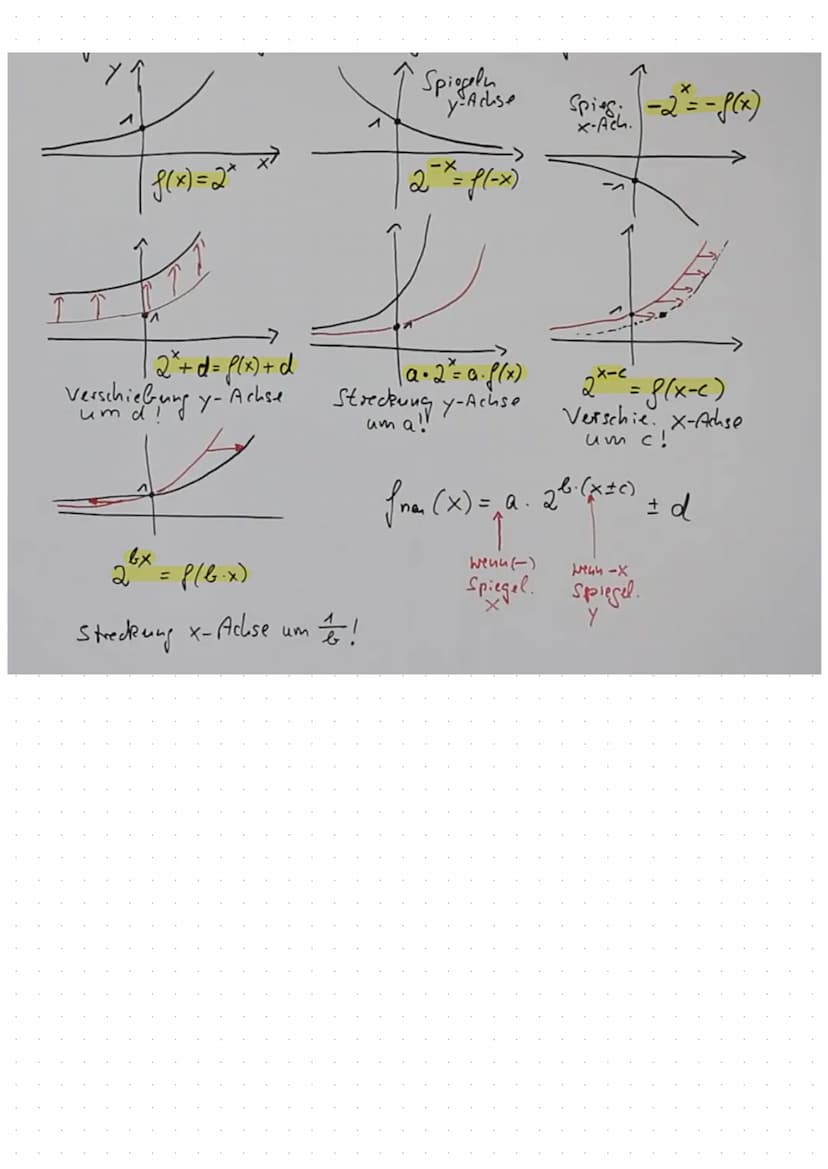 y
1
x
f(x)=2^x
Spiegeln
y-Achse
1
2^-x = f(-x)
Spieg.
x-Ach.
-2^x = -f(x)
-1
1
2^x + d = f(x) + d
Verschiebung y-Achse
um d!
1
a • 2^x = a · f(x)
Streckung y-Achse
um a!!
1
2^x-c = f(x-c)
Verschie. x-Achse
um c!
1
2^bx = f(b·x)
Streckung x-Achse um 1/b!
(x) = a · 2^b·(x±c) ± d
wenn(-)
Spiegel.
x
wenn -x
Spiegel.
y